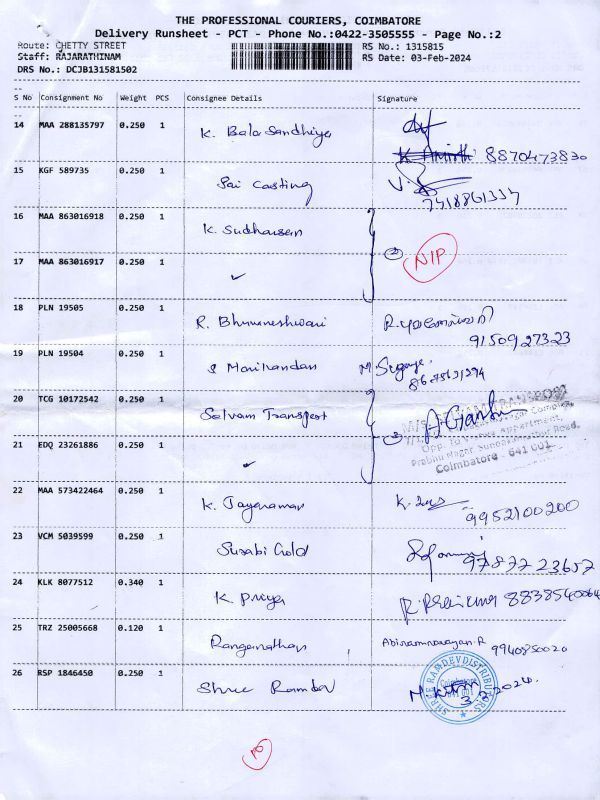 THE PROFESSIONAL COURIERS, COIMBATORE
Delivery Runsheet - PCT - Phone No.:0422-3505555 - Page No.:2
Route: CHETTY STREET RS No.: 1315815
Staff: RAJARATHINAM RS Date: 03-Feb-2024
DRS No.: DCJB131581502
S No Consignment No Weight PCS Consignee Details Signature
14 MAA 288135797 0.250 1 K. Bala Sandhiya
8870473830
15 KGF 589735 0.250 1 Sai Casting
7418861334
16 MAA 863016918 0.250 1 K. Sudharsan
② NIP
17 MAA 863016917 0.250 1 ✓
18 PLN 19505 0.250 1 R. Bhuvaneshwari
9150927323
19 PLN 19504 0.250 1 S Manikandan
8675631294
20 TCG 10172542 0.250 1 Selvam Transport
21 EDQ 23261886 0.250 1 ✓
Coimbatore - 641 001
22 MAA 573422464 0.250 1 K. Jayaraman
9952100200
23 VCM 5039599 0.250 1 Surabi Gold
9787223657
24 KLK 8077512 0.340 1 K. Priya
8838540064
25 TRZ 25005668 0.120 1 Ranganathan Abiramnarayan.R
9940850020
26 RSP 1846450 0.250 1 Shree Ramdev
SHREE RAMDEV DISTRIBUTORS
Coimbatore
641 001
3.2.2024